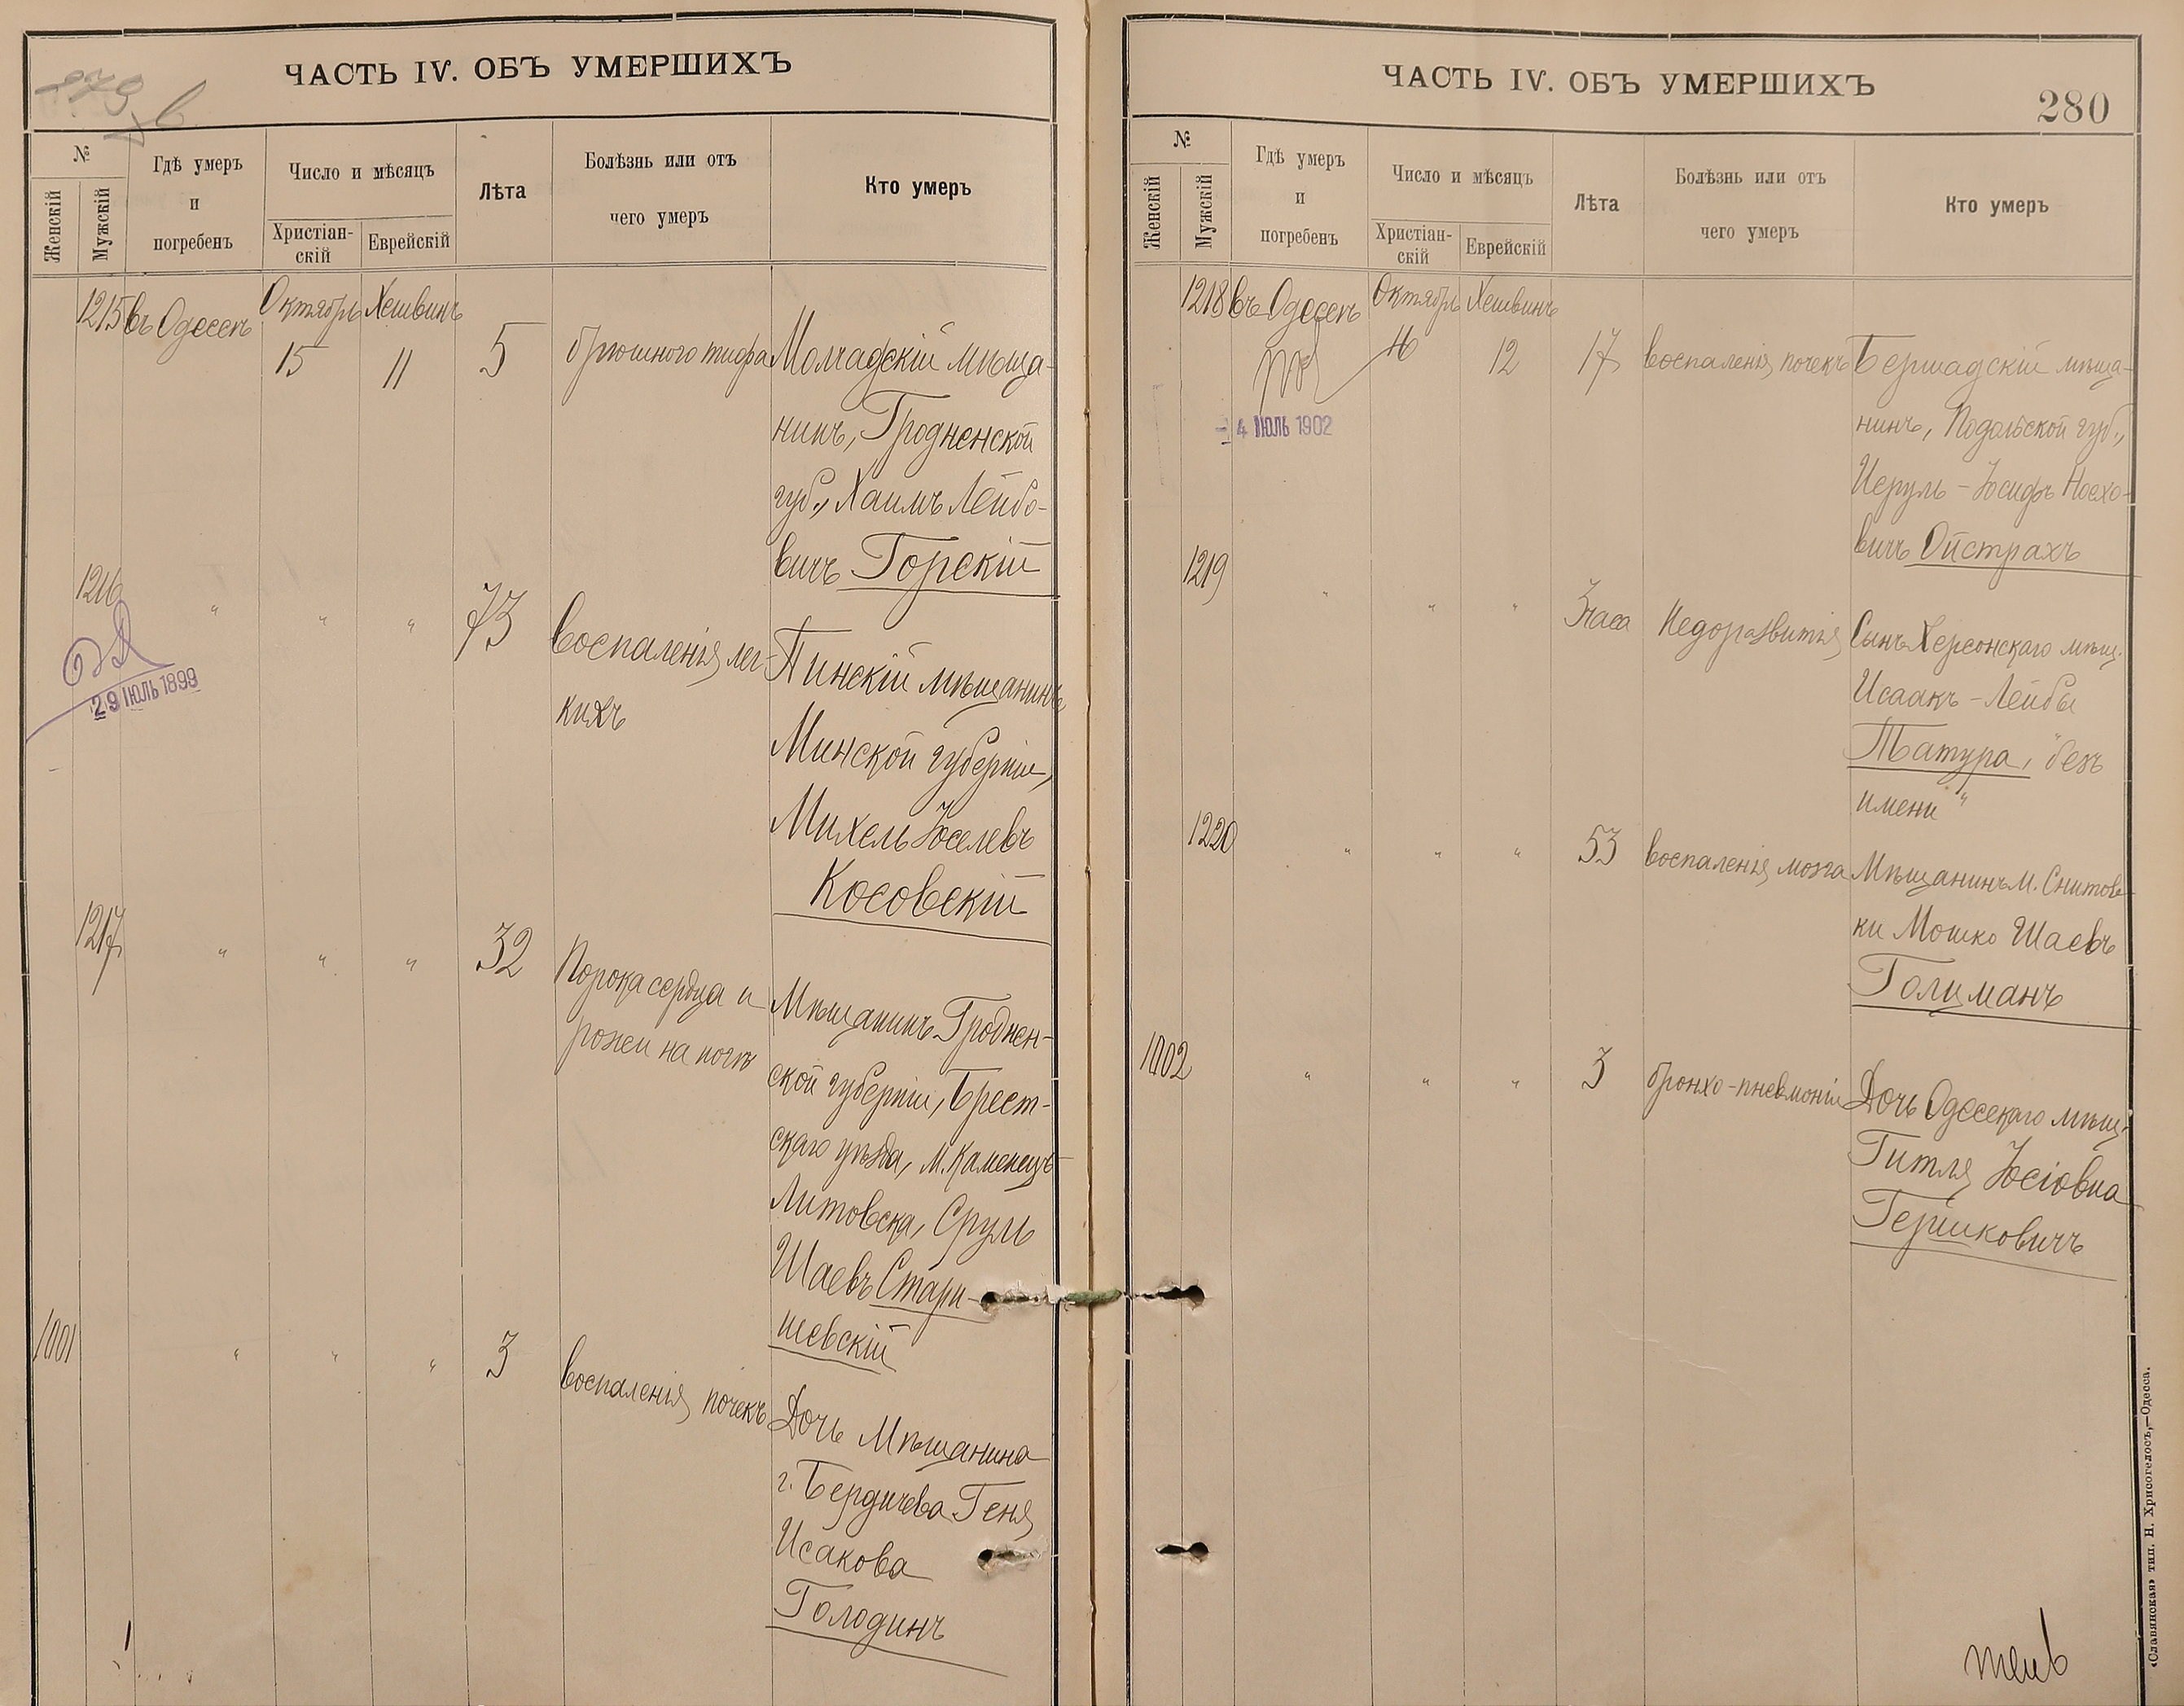 279 в
ЧАСТЬ IV. ОБЪ УМЕРШИХЪ
№
Женскій
Мужскій
Гдѣ умеръ
и
погребенъ
Число и мѣсяцъ
Христіан-
скій
Еврейскій
Лѣта
Болѣзнь или отъ
чего умеръ
Кто умеръ
1215 въ Одессѣ Октябрь Хешвинъ
15 11 5 брюшного тифа Молчадскій мѣща-
нинъ, Гродненской
губ., Хаимъ Лейбо-
вичъ Горскій
1216 " " " 73 Воспаленія лег-
кихъ
29 ІЮЛЬ 1899
Пинскій мѣщанинъ,
Минской губерніи,
Михель Іоселевъ
Косовскій
1217 " " " 32 Порока сердца и
рожи на ногѣ
Мѣщанинъ Гроднен-
ской губерніи, Брест-
скаго уѣзда, м. Каменецъ-
Литовска, Сруль
Шаевъ Стари-
шевскій
1001 " " " 3 воспаленія почекъ
Дочь Мѣщанина
г. Бердичева Геня
Исакова
Голодинъ
ЧАСТЬ IV. ОБЪ УМЕРШИХЪ
280
№
Женскій
Мужскій
Гдѣ умеръ
и
погребенъ
Число и мѣсяцъ
Христіан-
скій
Еврейскій
Лѣта
Болѣзнь или отъ
чего умеръ
Кто умеръ
1218 въ Одессѣ Октябрь Хешвинъ
16 12 17 воспаленія почекъ Бершадскій мѣща-
4 ІЮЛЬ 1902
нинъ, Подольской губ.,
Исруль-Іосифъ Носхо-
вичъ Ойстрахъ
1219 " " " 3 часа Недоразвитія Сынъ Херсонскаго мѣщ.
Исаакъ-Лейбы
Татура, "безъ
имени"
1220 " " " 53 воспаленія мозга Мѣщанинъ м. Снитов-
ки Мошко Шаевъ
Голцманъ
1002 " " " 3 бронхо-пневмоніи Дочь Одесскаго мѣщ.
Гитля Іосіовна
Гершковичъ
«Славянская» тип. Н. Хрисогелосъ,—Одесса.